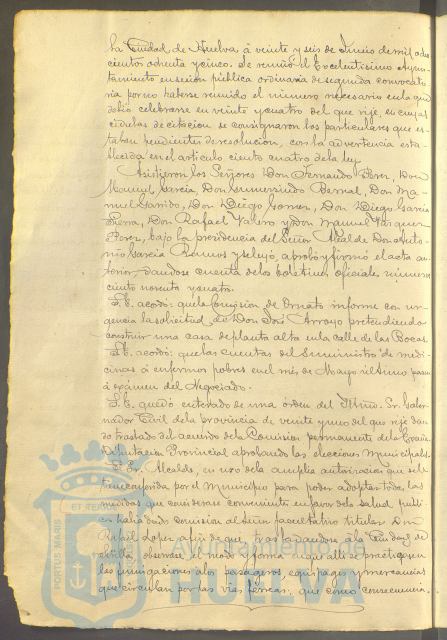 la Ciudad de Huelva, á veinte y seis de Junio de mil ocho
cientos ochenta y cinco. Se reunió el Excelentisimo Ayun-
tamiento en sesion pública ordinaria de segunda convocato
ria por no haberse reunido el número necesario en la que
debió celebrarse en veinte y cuatro del que rije, en cuyas
cédulas de citacion se consignaron los particulares que es-
taban pendientes de resolucion, con la advertencia esta-
blecida en el artículo ciento cuatro de la ley.
Asistieron los Señores Don Fernando Perez, Don
Manuel Garcia, Don Gumersindo Bernal, Don Ma-
nuel Garrido, Don Diego Gomez, Don Diego Garcia
Don Rafael Valero y Don Manuel Vazquez
Perez, bajo la presidencia del Señor Alcalde Don Anto-
nio Garcia Ramos y se leyó, aprobó y firmó el acta an-
terior, dandose cuenta de los boletines oficiales número
ciento noventa y cuatro.
S.E. acordó: que la Comision de Ornato informe con ur-
gencia la solicitud de Don José Arroyo pretendiendo
construir una casa de planta alta en la calle de las Bocas.
S.E. acordó: que las cuentas del Suministro de medi-
cinas á enfermos pobres en el més de Mayo último pasen
á exámen del Negociado.
S.E. quedó enterado de una órden del Iltmo. Sr. Gober-
nador Civil de la provincia de veinte y uno del que rije dan-
do traslado del acuerdo de la Comision permanente de la Excma
Diputacion Provincial aprobando las elecciones Municipales.
El Sr. Alcalde, en uso de la ámplia autorizacion que se le
tiene conferida por el Municipio para poder adoptar todas las
medidas que considerase convenientes en favor de la salud públi-
ca habia dado comision al Señor facultativo titular Don
Rafael Lopez a fin de que trasladandose á la Ciudad de
Sevilla observase el modo y forma en que alli se practiquen
las fumigaciones a los pasageros, equipages y mercancias
que circulan por las vias férreas; que como consecuencia
PORTUS MARIS
ET TERRAE
Ayuntamiento de
HUELVA